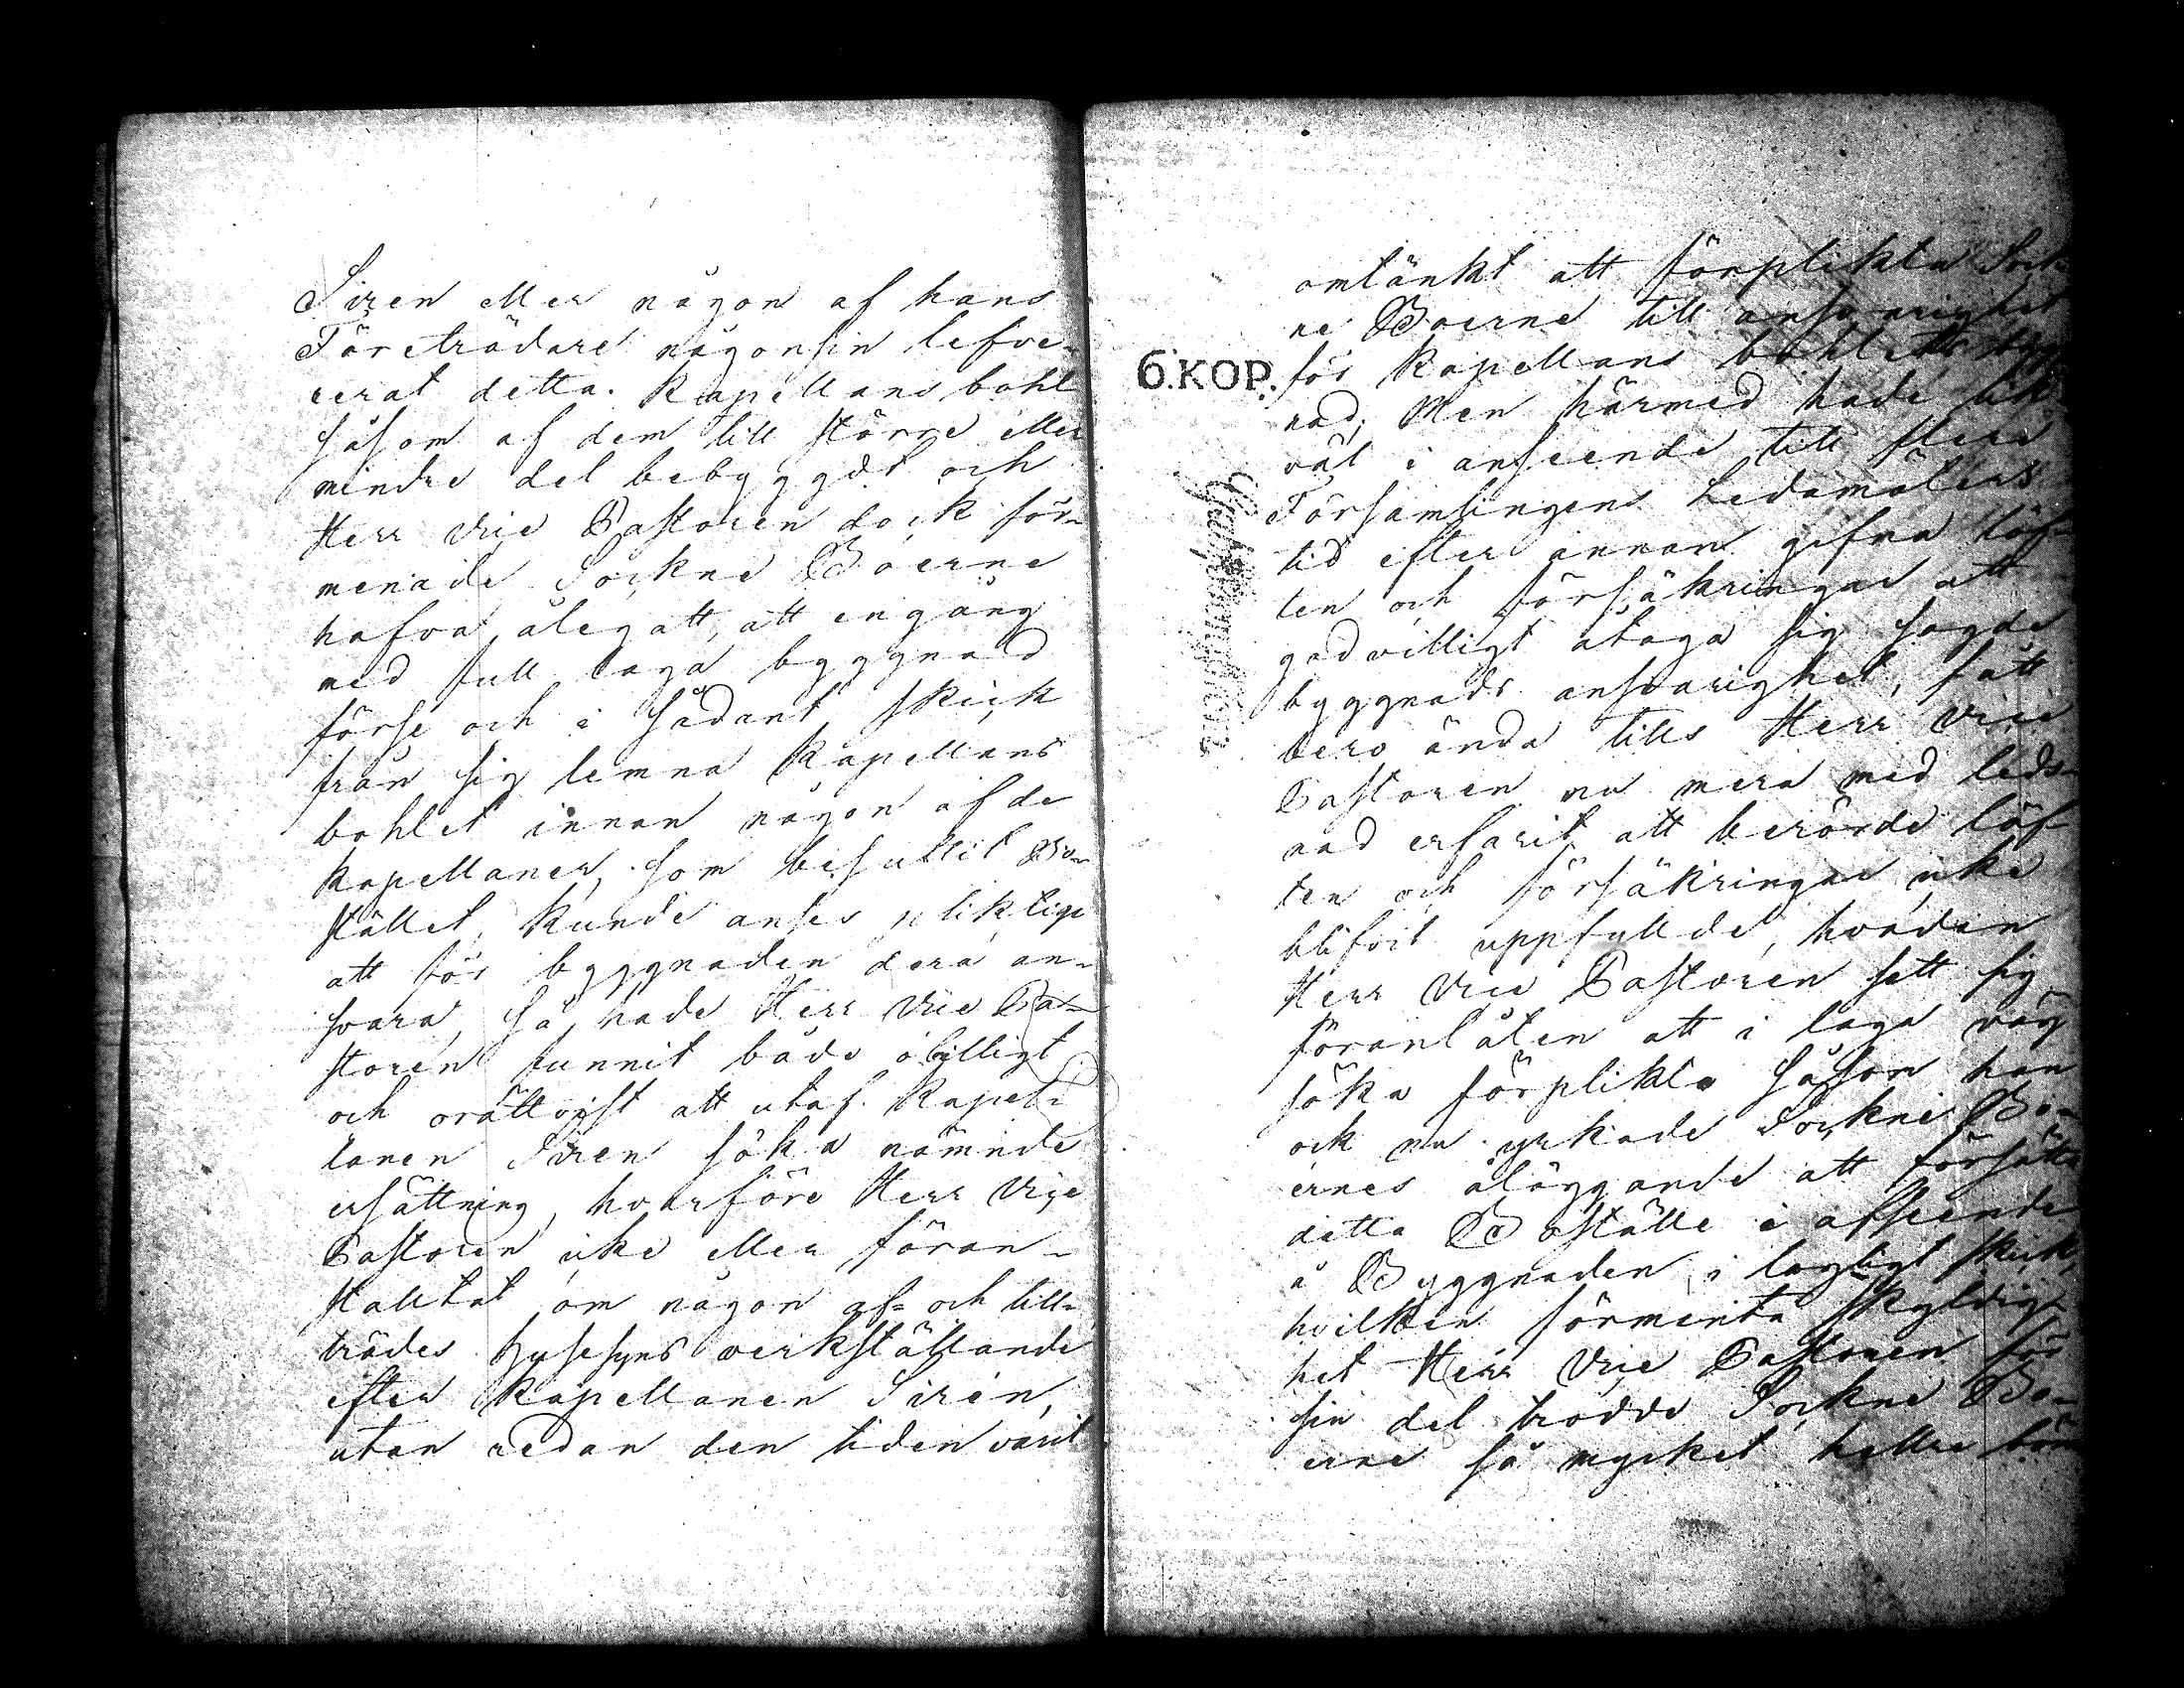 Siren eller någon af hans
Företrädare någonsin lefve-
rerat detta Kapellans bohl
såsom af dem till större eller
mindre del bebyggdt och
Herr Vice Pastoren dock för-
menade Sockne Boerne
hafva ålegatt, att engång
med full laga byggnad
förse och i sådant skick
från sig lemna Kapellans
bohlet innan någon af de
Kapellaner som besuttit Bo-
stället, kunde anses pliktige
att för byggnaden dera an-
svara, så hade Herr Vice Pa-
storen funnit både obilligt
och orättvist att utaf Kapel-
lanen Siren söka nämnde
ersättning, hvarföre Herr Vice
Pastoren icke eller föran-
staltat om någon af- och till-
trädes Husesyns verkställande
efter Kapellanen Sirén,
utan redan den tiden varit
omtänkt att förplikta Sock-
ne Boerne till ansvarighet
6.KOP. för Kapellans bohlets bygg-
nad; Men härmed hade lik-
väl i anseende till flere
Församlingens Ledamöters
tid efter annan gifna löf-
ten och försäkringar att
godvilligt åtaga sig sagde
byggnads ansvarighet, fått
bero ända tills Herr Vice
Pastoren nu mera med leds-
nad erfarit att berörde löf-
ten och försäkringar icke
blifvit uppfyllde, hvadan
Herr Vice Pastoren sett sig
föranlåten att i laga väg
söka förplikta såsom han
ock nu yrkade Sockne Bo-
ernes åläggande att försätta
detta Boställe i afseende
å Byggnaden i lagligt skick,
hvilken förmenta skyldig-
het Herr Vice Pastoren för
sin del trodde Sockne Bo-
erne så mycket heller böra